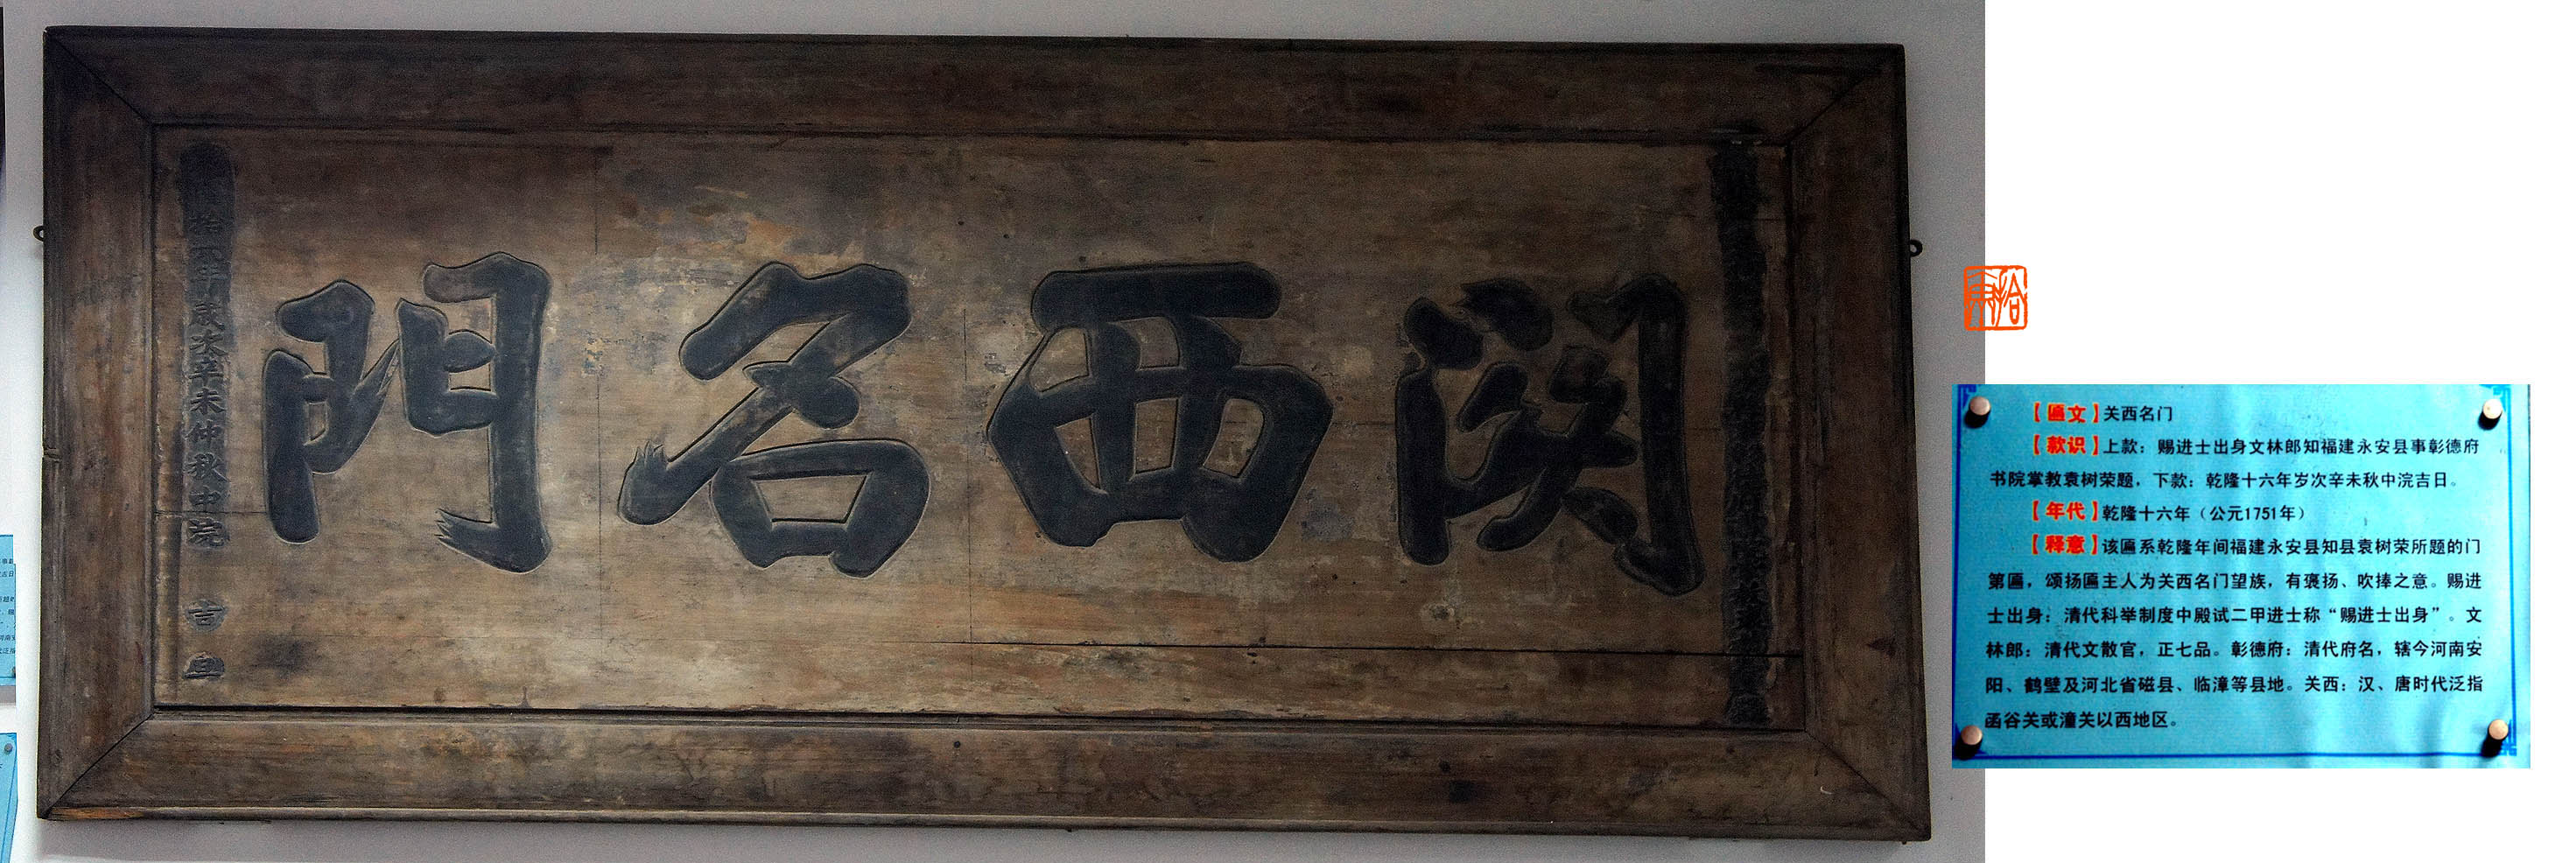 関西名門
拾六年歲次辛未仲秋中浣吉旦
【匾文】关西名门
【款识】上款：赐进士出身文林郎知福建永安县事彰德府
书院掌教袁树荣题，下款：乾隆十六年岁次辛未秋中浣吉日。
【年代】乾隆十六年（公元1751年）
【释意】该匾系乾隆年间福建永安县知县袁树荣所题的门
第匾，颂扬匾主人为关西名门望族，有褒扬、吹捧之意。赐进
士出身：清代科举制度中殿试二甲进士称“赐进士出身”。文
林郎：清代文散官，正七品。彰德府：清代府名，辖今河南安
阳、鹤壁及河北省磁县、临漳等县地。关西：汉、唐时代泛指
函谷关或潼关以西地区。